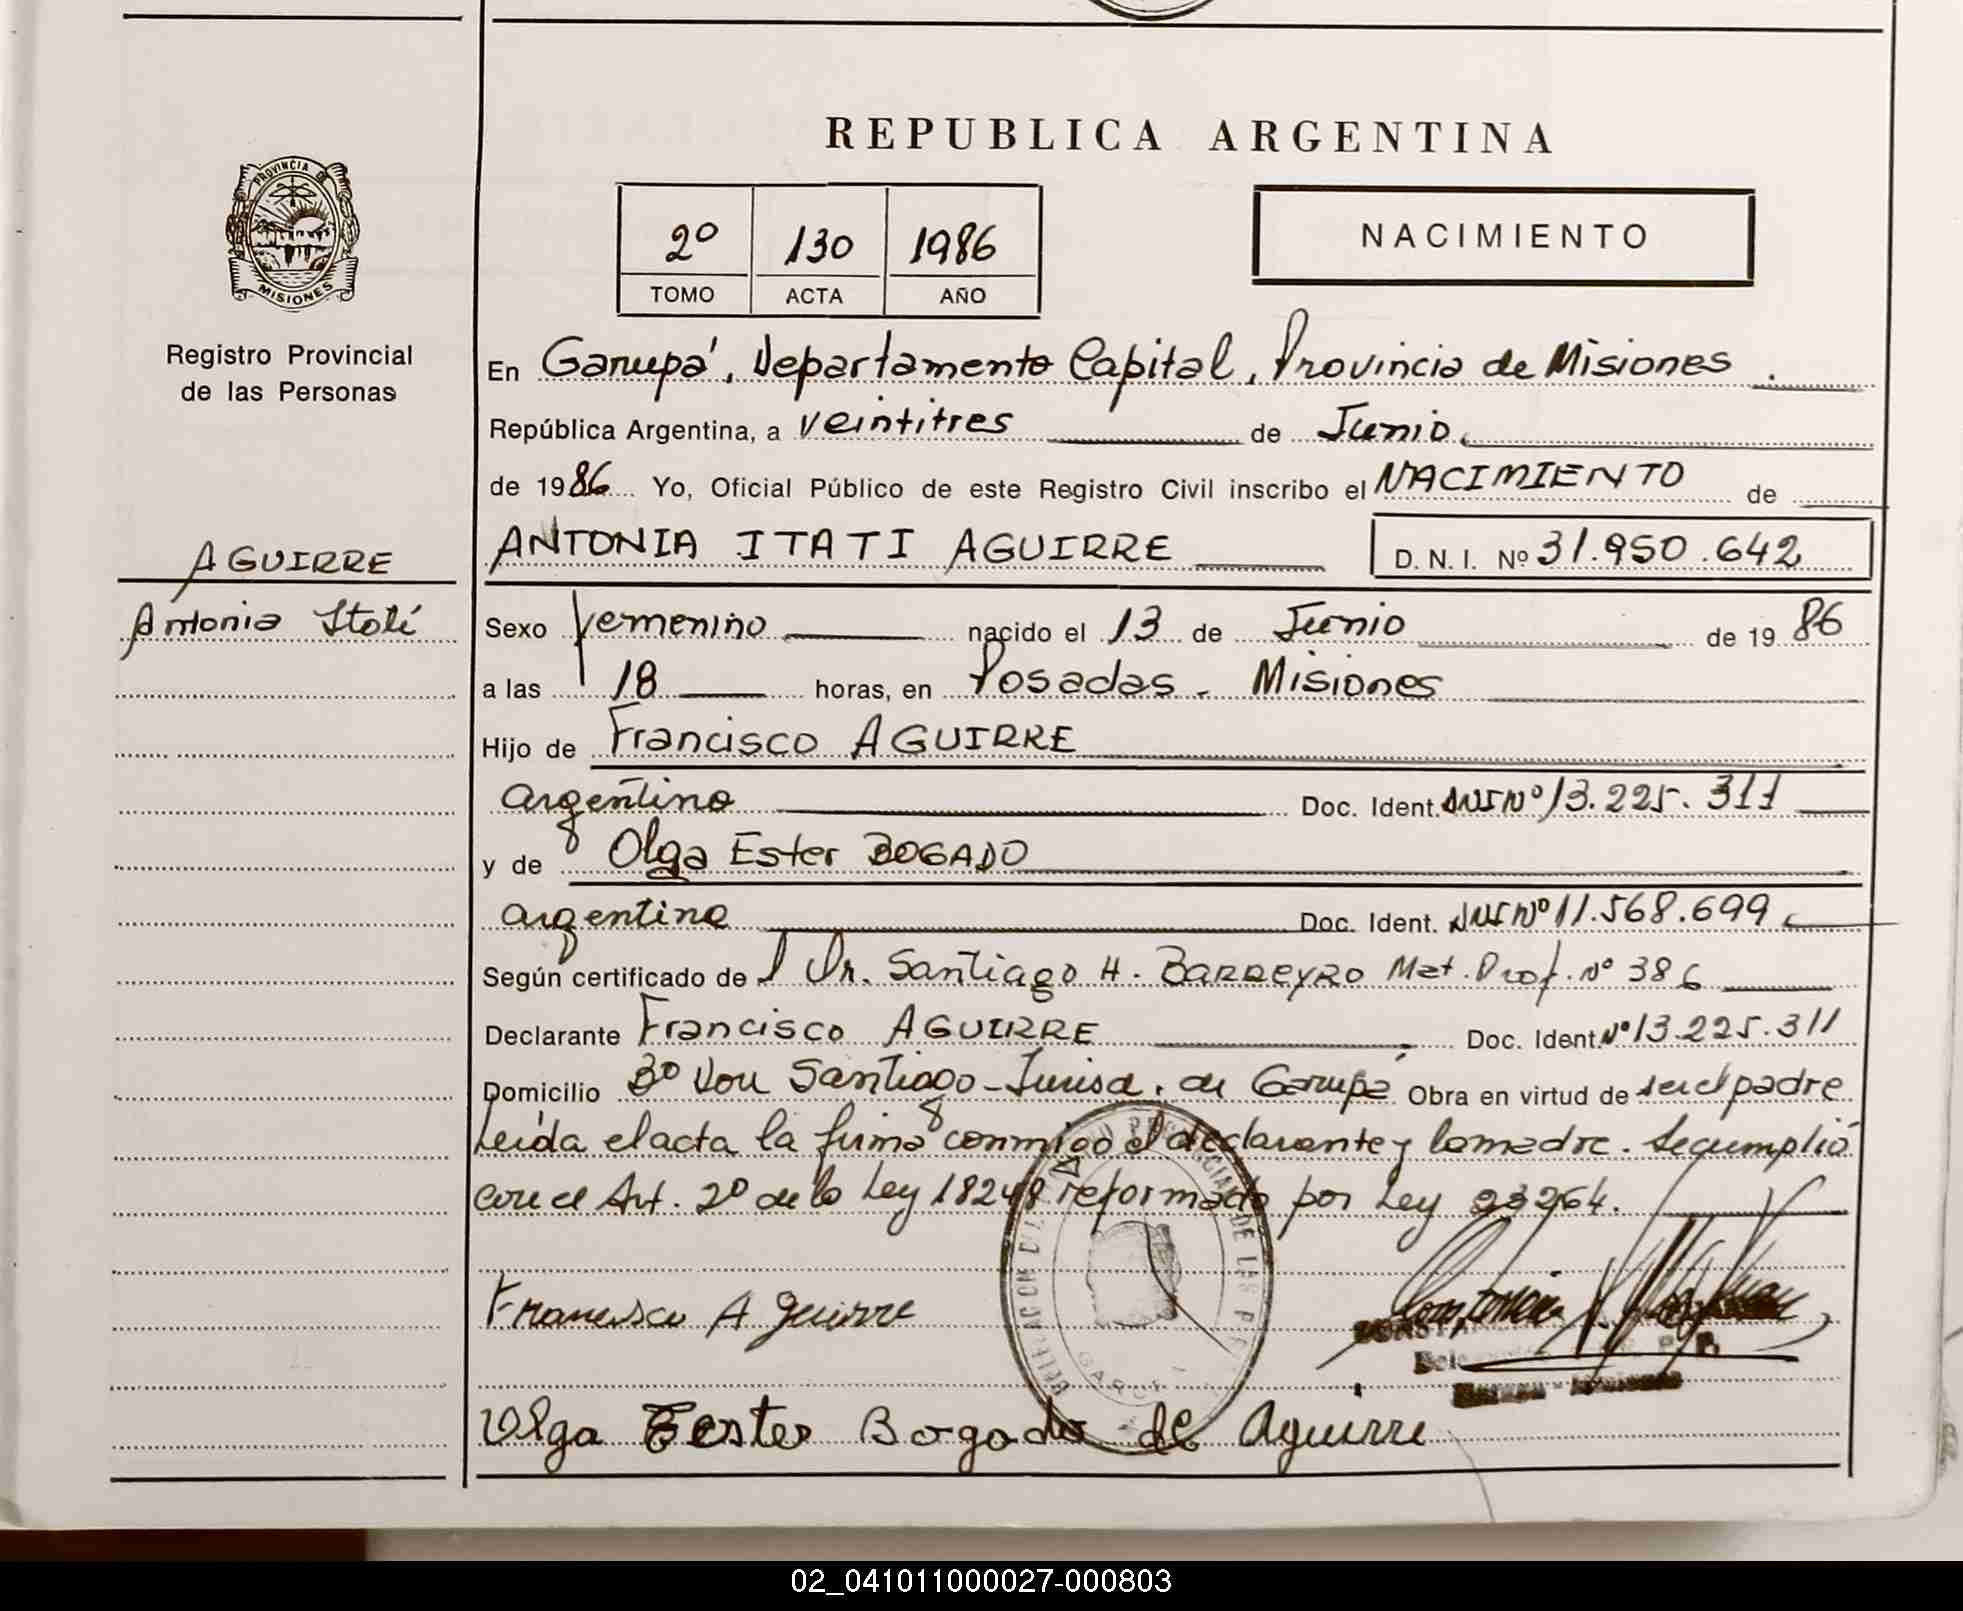 REPUBLICA ARGENTINA
PROVINCIA DE
MISIONES
Registro Provincial
de las Personas
2º 130 1986
TOMO ACTA AÑO
NACIMIENTO
En Garupá, Departamento Capital, Provincia de Misiones.
República Argentina, a veintitres de Junio
de 1986 Yo, Oficial Público de este Registro Civil inscribo el NACIMIENTO de
AGUIRRE
Antonia Itatí
ANTONIA ITATI AGUIRRE D. N. I. Nº 31.950.642
Sexo Femenino nacido el 13 de Junio de 1986
a las 18 horas, en Posadas - Misiones
Hijo de Francisco AGUIRRE
argentino Doc. Ident. DNI Nº 13.225.311
y de Olga Ester BOGADO
argentina Doc. Ident. DNI Nº 11.568.699
Según certificado de Dr. Santiago H. BARREYRO Mat. Prof. Nº 386
Declarante Francisco AGUIRRE Doc. Ident. Nº 13.225.311
Domicilio Bº Don Santiago - Jurisd. de Garupá Obra en virtud de ser el padre
Leída el acta la firma conmigo el declarante y la madre. Se cumplió
con el Art. 2º de la Ley 18248 reformada por Ley 23264.
Francisco Aguirre
DE LAS
GARUPA
Olga Ester Bogado de Aguirre
02_041011000027-000803